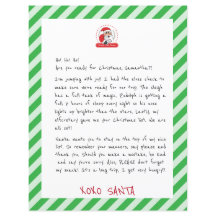 Ho! Ho! Ho!
Are you ready for Christmas, Samantha?!
I'm jumping with joy! I had the elves check to
make sure were ready for our trip. The sleigh
has a full tank of magic. Rudolph is getting a
full 8 hours of sleep every night so his nose
lights up brighter than the stars. Lastly, my
have gotten me your Christmas list. We are
all set!
Santa wants you to stay at the top of my nice
list. So remember your manners, say please and
thank you, should you make a mistake, be kind
and say you're sorry. Also, Please don't forget
my snack! It's a long trip. I get very hungry!!
XOXO SANTA